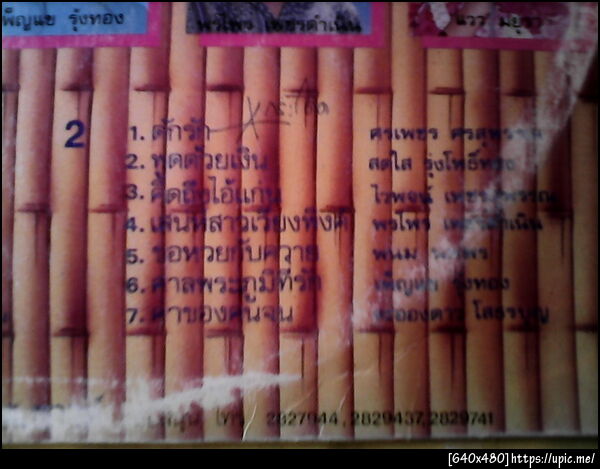 เพ็ญแข รุ้งทอง
พรไพร เพชรดำเนิน
แวว มยุรา
2
1. ดักรัก ศรเพชร ศรสุพรรณ
2. พูดด้วยเงิน สดใส รุ่งโพธิ์ทอง
3. คิดถึงไอ้แก่น ไวพจน์ เพชรสุพรรณ
4. เสน่ห์สาวเวียงพิงค์ พรไพร เพชรดำเนิน
5. ขอหวยกับควาย พนม
6. ศาลพระภูมิที่รัก เพ็ญแข รุ้งทอง
7. ค่าของคนจน ละอองดาว โสธรบุญ
โทร. 2827944, 2829437, 2829741
[640x480]https://upic.me/